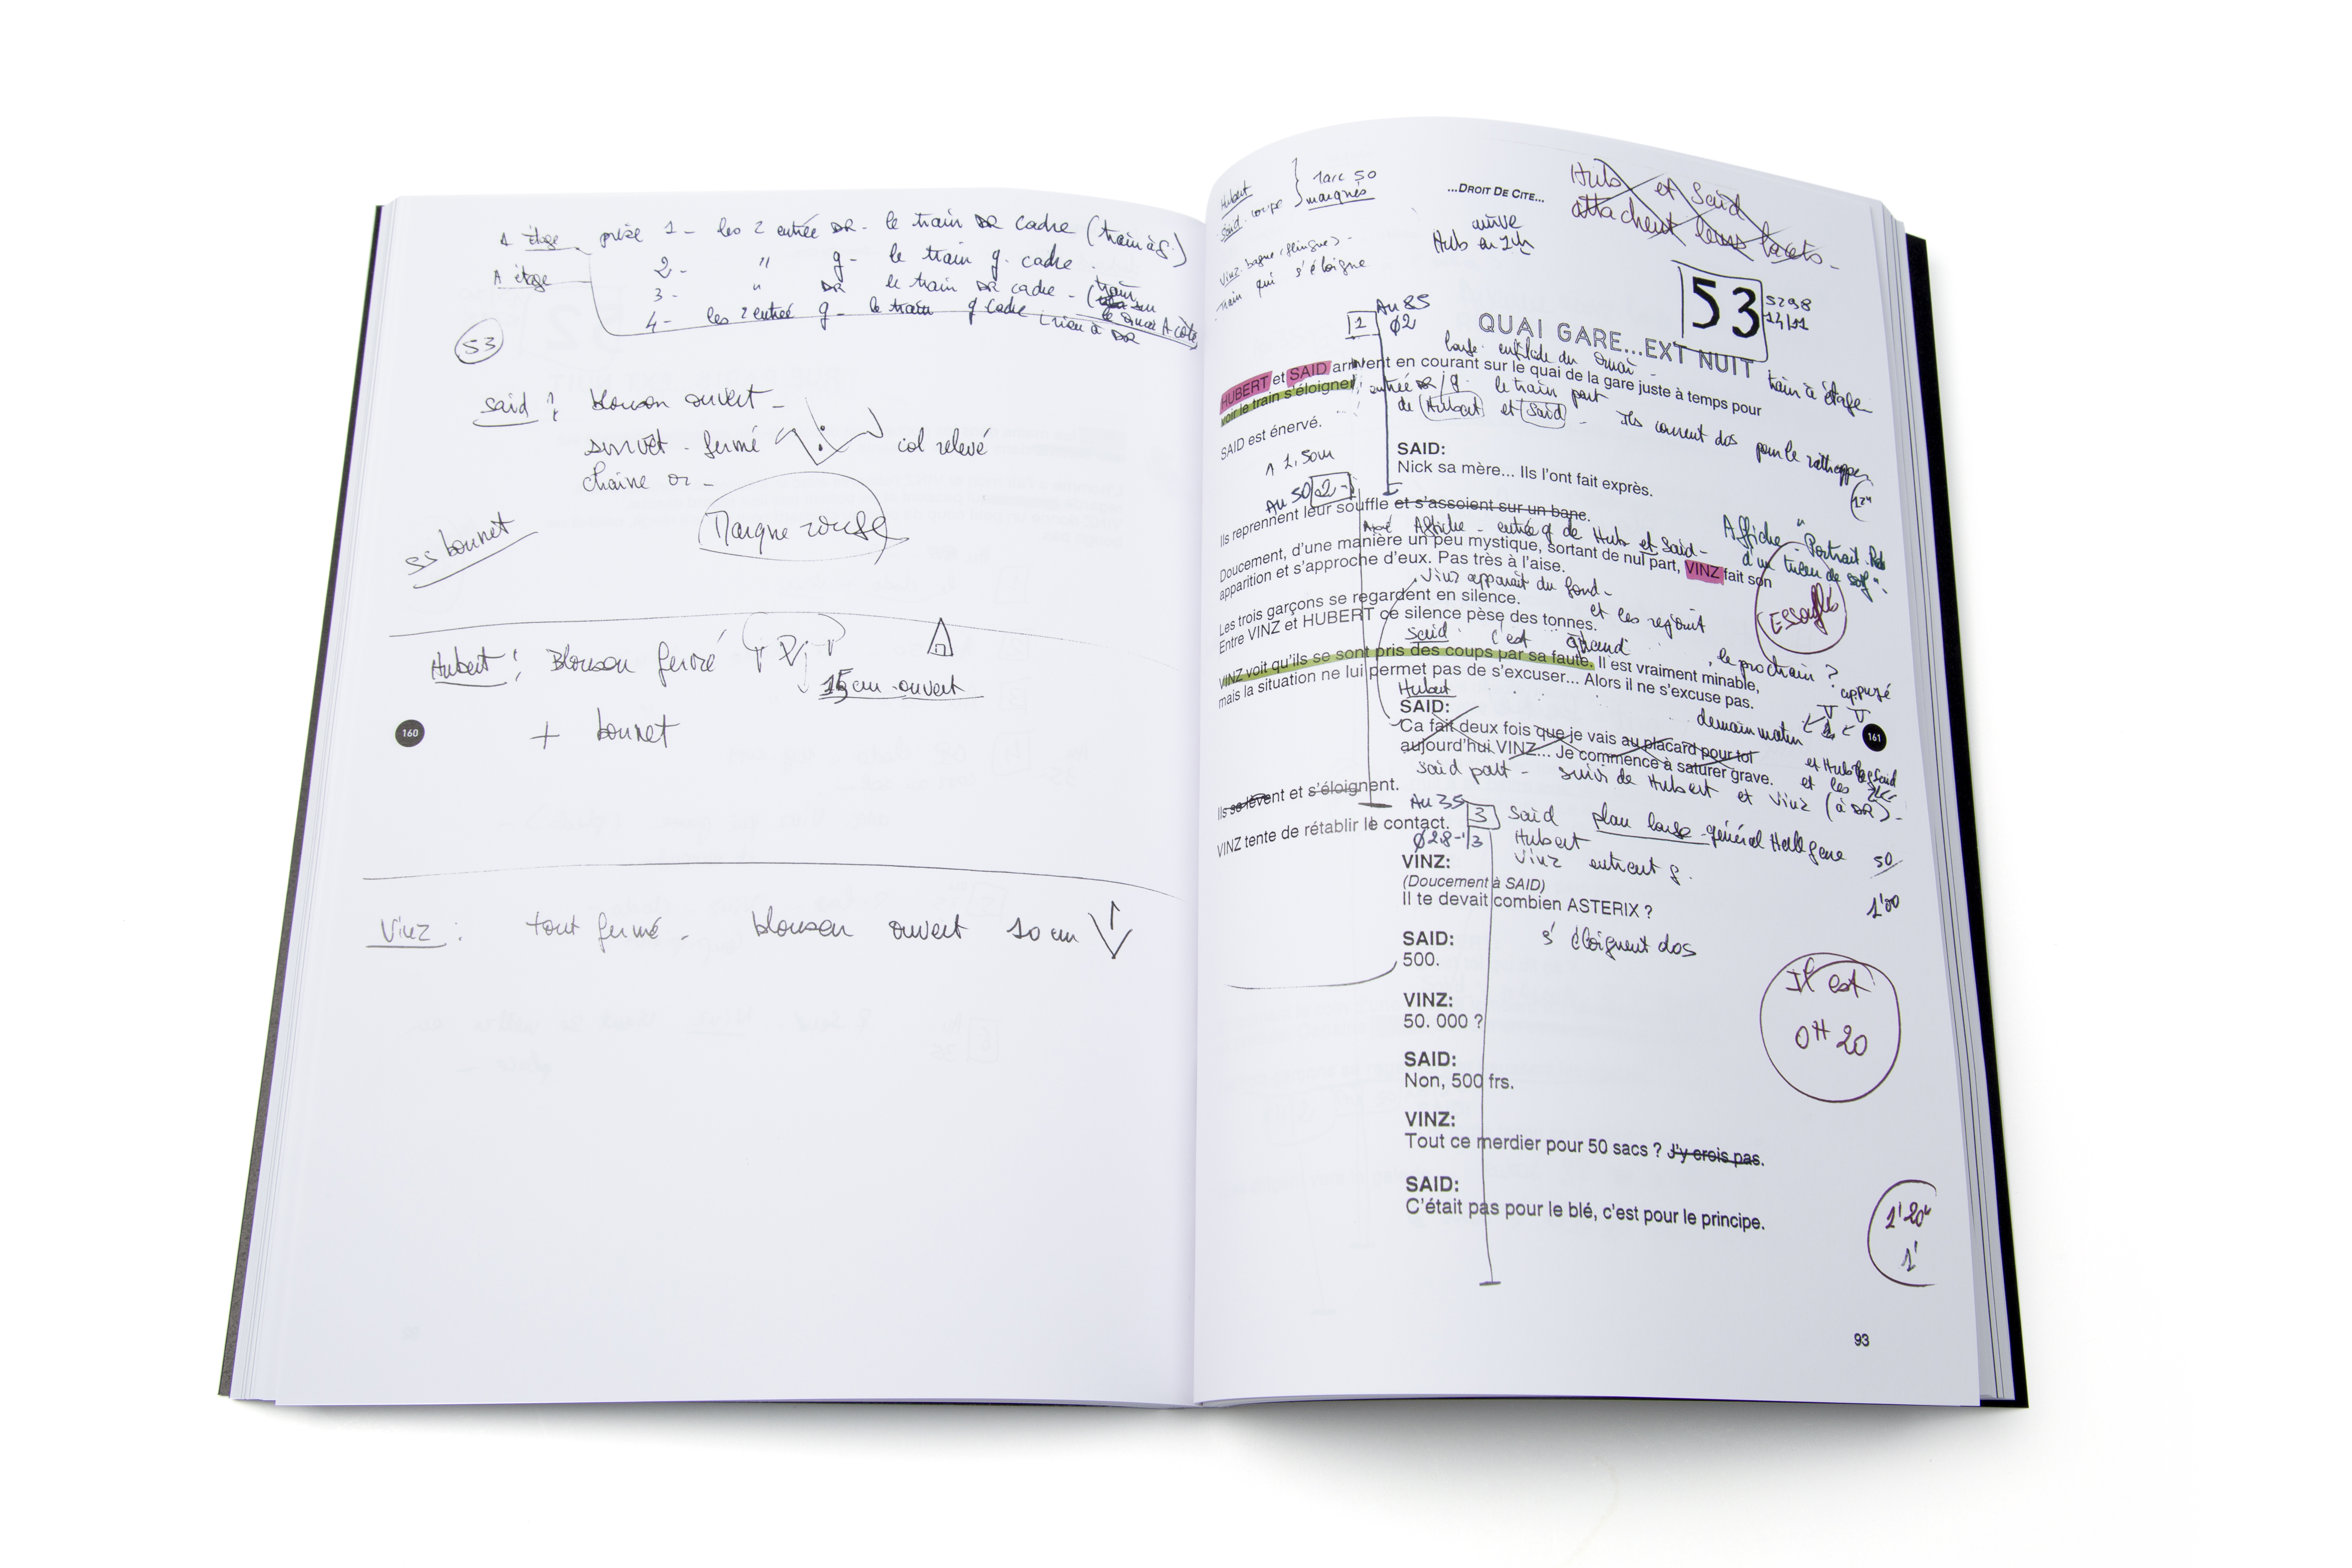 A étage prise 1 - les 2 entrée DR - le train DR cadre (train à g.)
A étage 2 - " g - le train g. cadre.
3 - " DR le train DR cadre - (train sur le quai A côté
4 - les 2 entrée g - le train g cadre (rien à DR
53
Said : blouson ouvert -
survet - fermé col relevé
chaine or -
ss bonnet
Marque rouge
Hubert : Blouson fermé
15 cm ouvert
+ bonnet
160
Vinz : tout fermé - blouson ouvert 10 cm
Hubert
Said
coupe
marqués
Vinz - bague
Train qui s'éloigne
...DROIT DE CITE...
Hub et Said
attachent leurs lacets -
arrive
Hub en
53
5298
14/11
1
Au 85
QUAI GARE...EXT NUIT
large enfilade du quai -
train à étage
HUBERT et SAID arrivent en courant sur le quai de la gare juste à temps pour
voir le train s'éloigner.
entrée DR/g. le train part
de Hubert et Said - Ils courent dos pour le rattrapper
SAID est énervé.
SAID:
Nick sa mère... Ils l'ont fait exprès.
1,50m
Au 50 2
12"
Ils reprennent leur souffle et s'assoient sur un banc.
Affiche - entrée g de Hub et Said -
Affiche - Portrait
Doucement, d'une manière un peu mystique, sortant de nul part, VINZ fait son
apparition et s'approche d'eux. Pas très à l'aise.
Vinz apparait du fond -
et les rejoint
Essouflés
Les trois garçons se regardent en silence.
Entre VINZ et HUBERT ce silence pèse des tonnes.
Said : c'est quand le prochain ?
VINZ voit qu'ils se sont pris des coups par sa faute. Il est vraiment minable,
mais la situation ne lui permet pas de s'excuser... Alors il ne s'excuse pas.
Hubert
demain matin
161
SAID:
Ca fait deux fois que je vais au placard pour toi
aujourd'hui VINZ... Je commence à saturer grave.
Said part - suivi de Hubert et Vinz (à DR) -
Ils se lèvent et s'éloignent.
Au 35
3 Said plan large - général Hall gare
Hubert
Vinz entrent g.
50
VINZ tente de rétablir le contact.
VINZ:
(Doucement à SAID)
Il te devait combien ASTERIX ?
1'00
s'éloignent dos
SAID:
500.
Il est
0H20
VINZ:
50. 000 ?
SAID:
Non, 500 frs.
VINZ:
Tout ce merdier pour 50 sacs ? J'y crois pas.
SAID:
C'était pas pour le blé, c'est pour le principe.
1'20"
1'
93